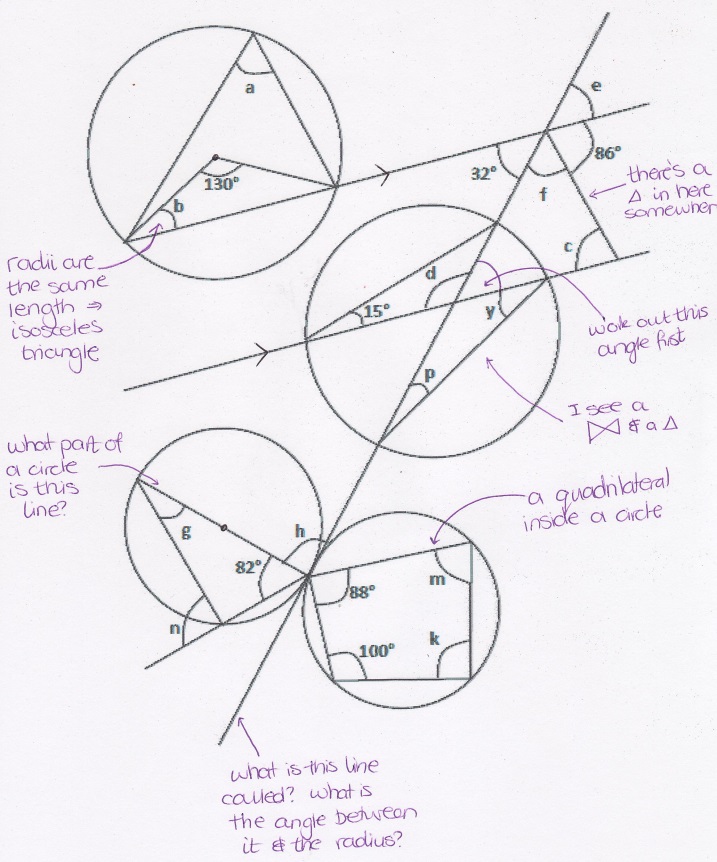 a
130°
b
e
32°
86°
f
there's a
Δ in here
somewher
c
radii are
the same
length ⇒
isosceles
triangle
d
15°
y
work out this
angle first
p
I see a
⋈ & a Δ
what part of
a circle
is this
line?
a quadrilateral
inside a circle
g
h
82°
88°
m
n
100°
k
what is this line
called? what is
the angle between
it & the radius?